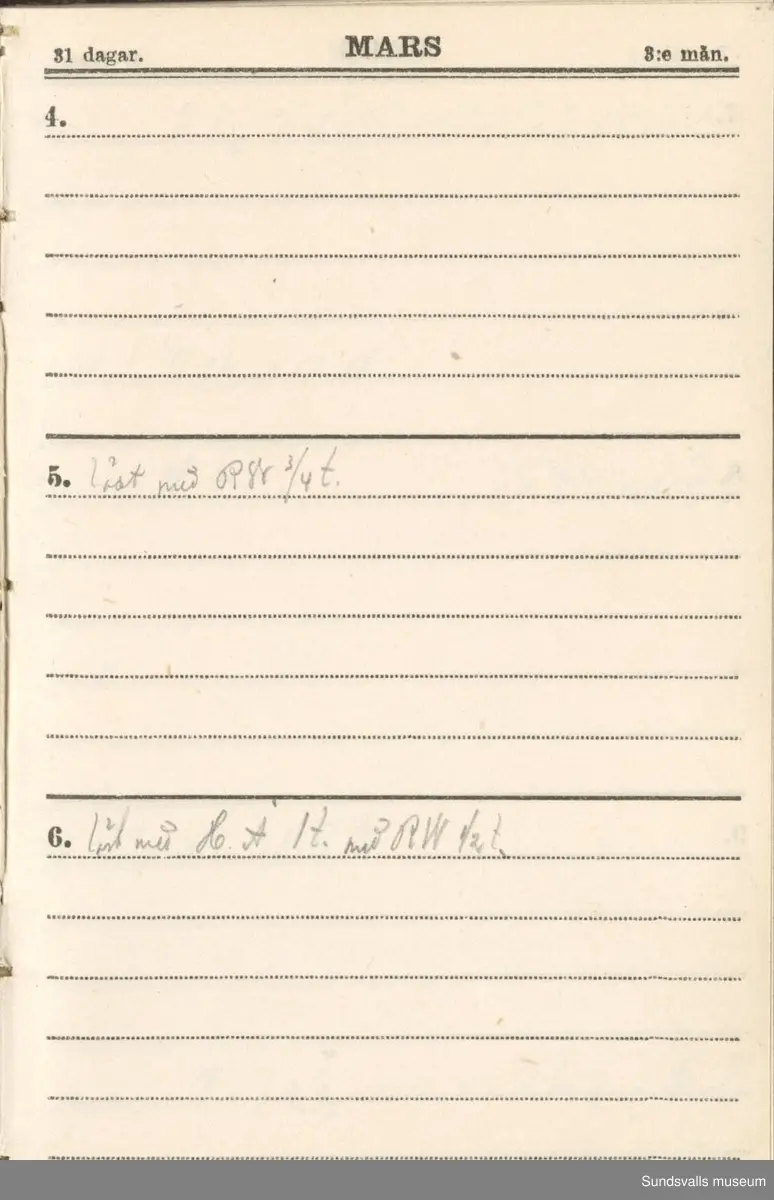 31 dagar. MARS 3:e mån.
4.
5. läst med RW 3/4 t.
6. läst med H. A 1 t. med RW 1/2 t.
Sundsvalls museum